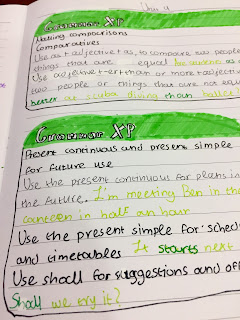 Unit 9
Grammar XP
Making comparisons
Comparatives
Use as + adjective + as, to compare two people
things that are equal he swims as
Use adjective + er + than or more + adjective
two people or things that are not
better at scuba diving than ballet
Grammar XP
Present continuous and present simple
for future use
Use the present continuous for plans in
the future. I'm meeting Ben in the
canteen in half an hour
Use the present simple for sched
and timetables It starts next
Use shall for suggestions and off
Shall we try it?